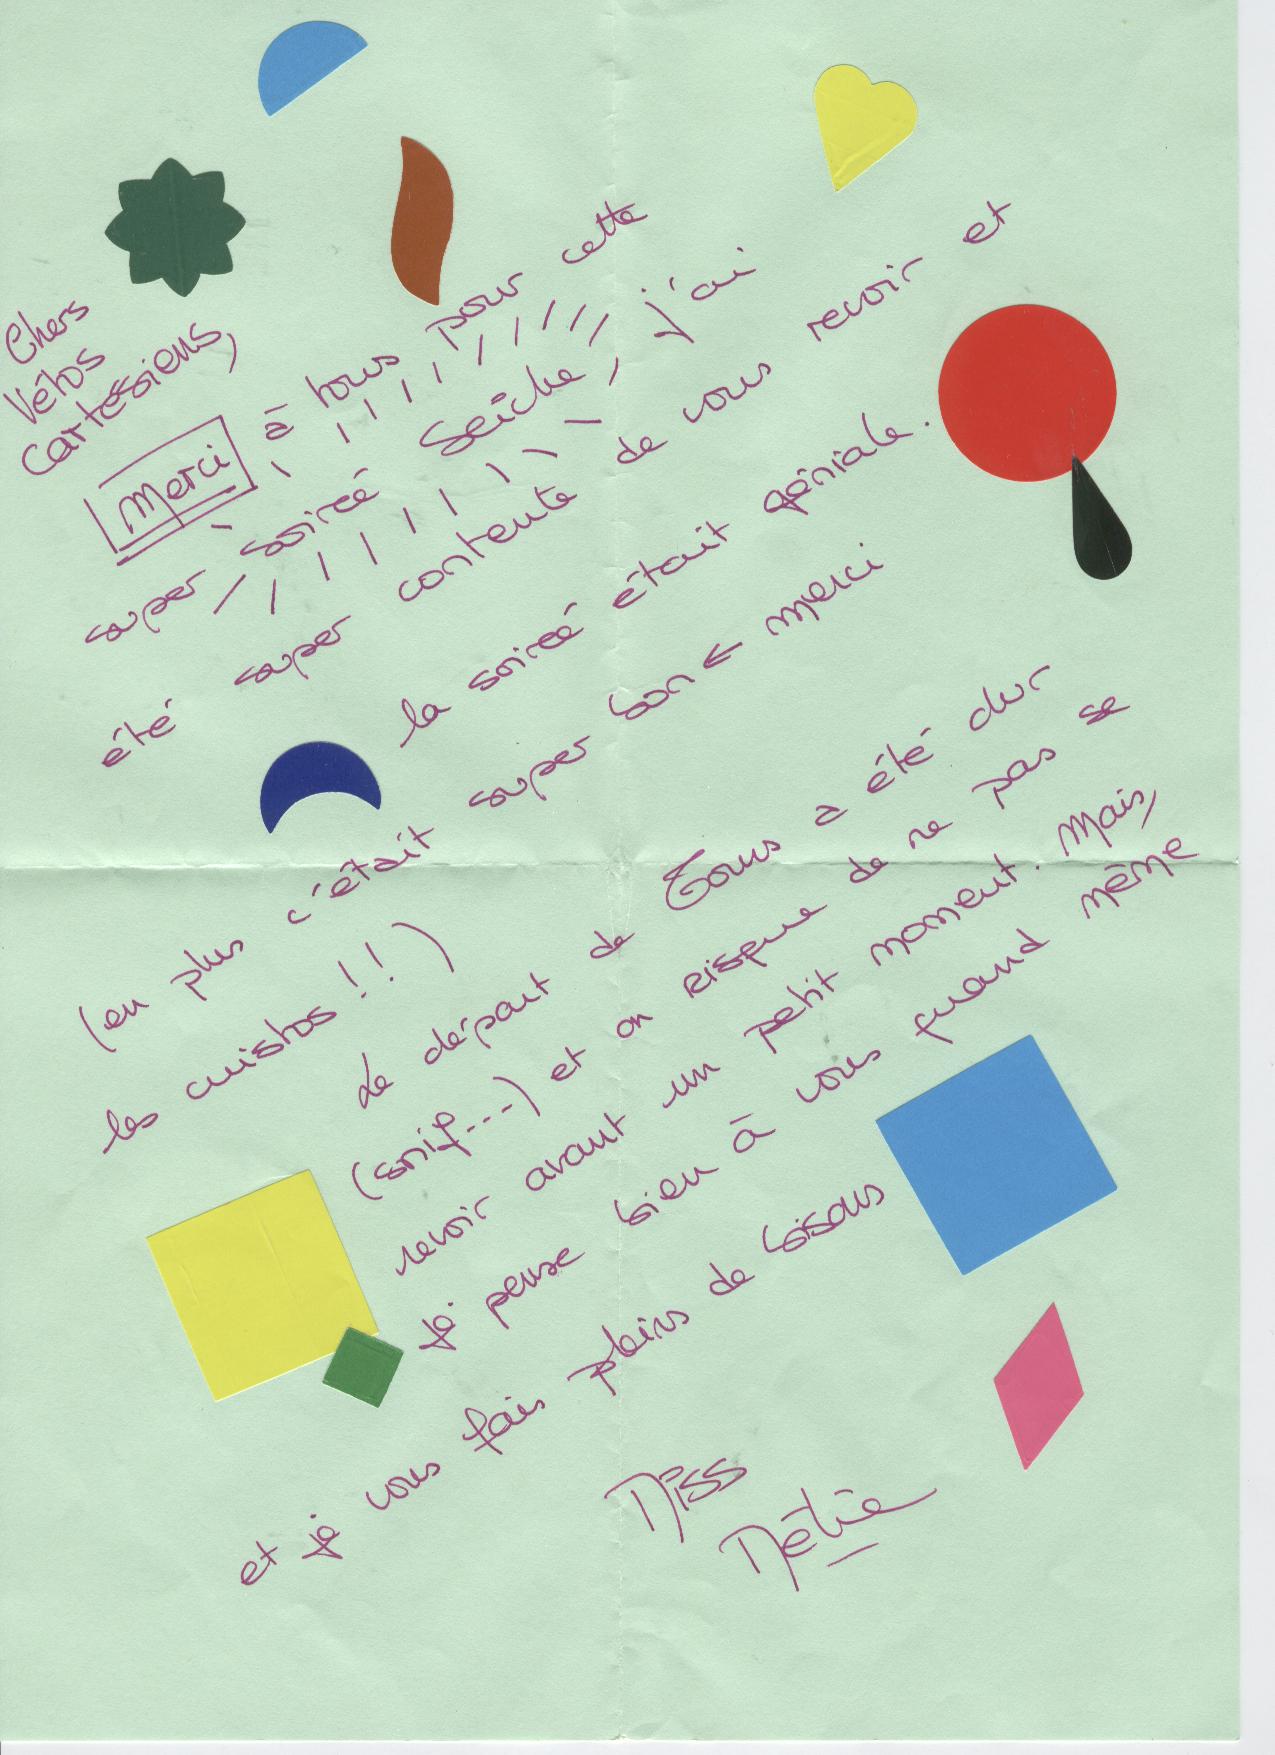 Chers
Vétos
Cartésiens,
Merci à tous pour cette
super soirée Seiche, j'ai
été super contente de vous revoir et
la soirée était géniale.
(en plus c'était super bon ← merci
les cuistos !!)
Le départ de Tours a été dur
(snif---) et on risque de ne pas se
revoir avant un petit moment. Mais,
je pense bien à vous quand même
et je vous fais pleins de bisous
Miss